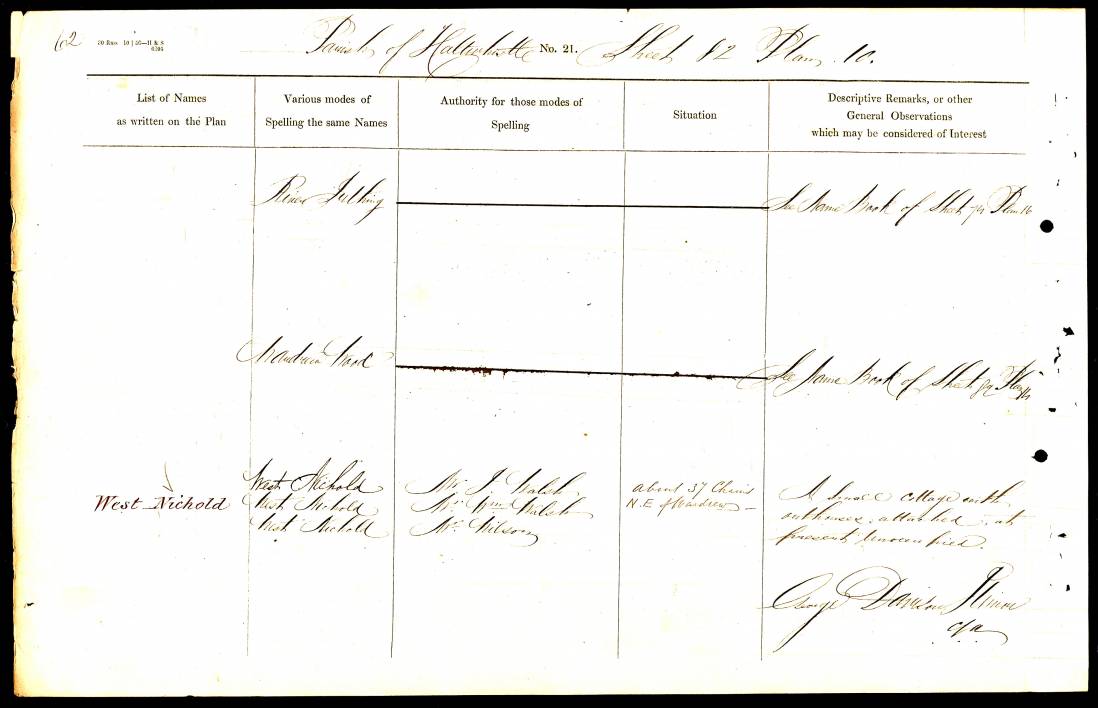 62
Parish of Haltwhistle No. 21. Sheet 82 Plan 10.
List of Names
as written on the Plan
Various modes of
Spelling the same Names
Authority for those modes of
Spelling
Situation
Descriptive Remarks, or other
General Observations
which may be considered of Interest
River Irthing
See Name Book of Sheet Plan 16
Wardrew Wood
See Name Book of Sheet
West Nichold
West Nichold
West Nichold
West Nichold
Mr. J. Walsh.
Mr. Wm. Walsh
Mr. Wilson
about 37 Chains
N.E of Wardrew
A small cottage with
outhouses, attached, at
present Unoccupied.
George Davison
c/a